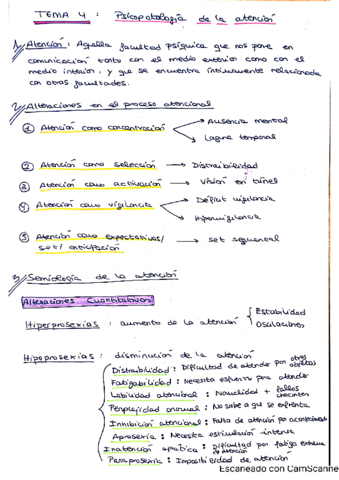 TEMA 4 : Psicopatología de la atención
1) Atención : Aquella facultad psíquica que nos pone en
comunicación tanto con el medio exterior como con el
medio interior, y que se encuentra íntimamente relacionada
con otras facultades.
2) Alteraciones en el proceso atencional
① Atención como concentración
Ausencia mental
Laguna temporal
② Atención como selección → Distraibilidad
③ Atención como activación → Visión en túnel
④ Atención como vigilancia
Déficit vigilancia
Hipervigilancia
⑤ Atención como expectativas/
set/ anticipación → set segmental
3) Semiología de la atención
Alteraciones Cuantitativas
Hiperprosexias : aumento de la atención
Estabilidad
Oscilaciones
Hipoprosexias : disminución de la atención
Distraibilidad : Dificultad de atender por otros objetos
Fatigabilidad : Necesita esfuerzo para atender
Labilidad atencional : + fallos
Perplejidad anormal : No sabe a que se enfrenta
Inhibición atencional : Falta de atención por
Aprosexia : Necesita estimulación intensa
Inatención apática : Dificultad por fatiga extrema
de atención
Paraprosexia : Imposibilidad de atención
Escaneado con CamScanner